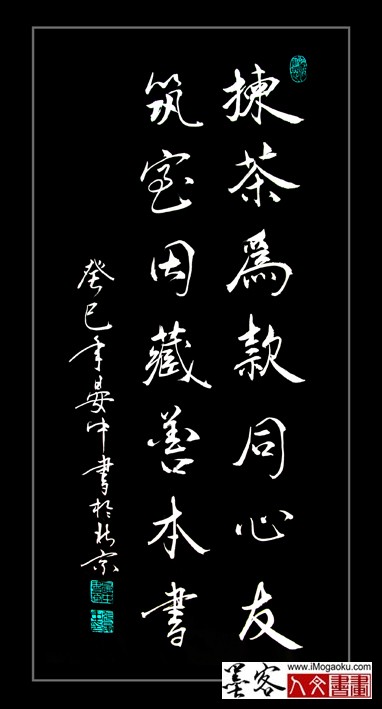 揀茶爲款同心友
筑室因藏善本書
癸巳年晏中書於北京
www.iMogaoku.com
墨客人文書畫